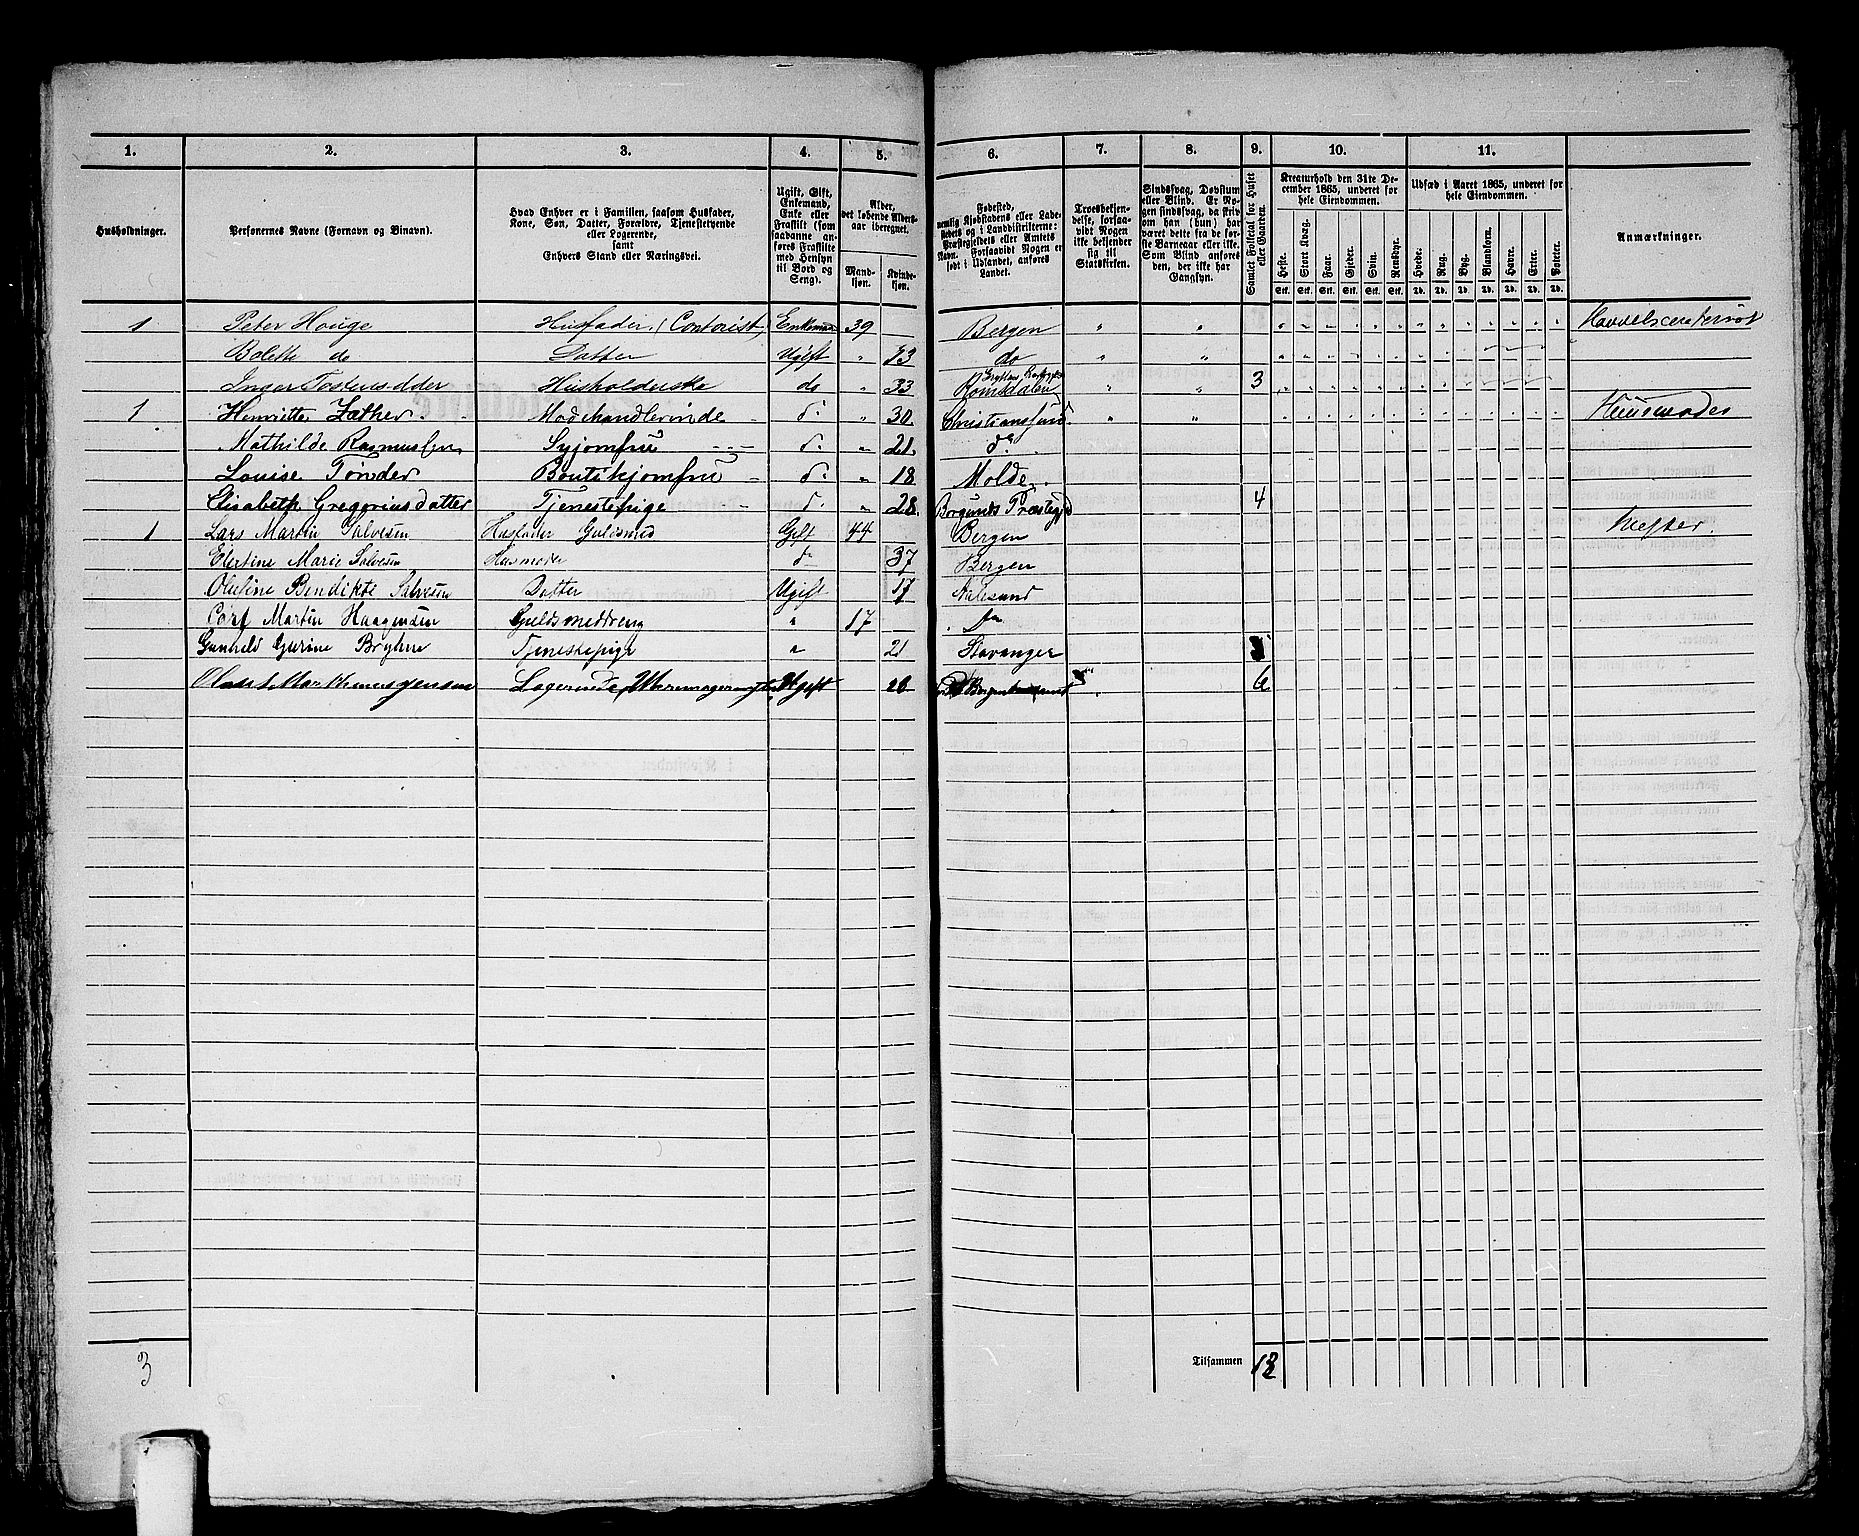 1. 2. 3. 4. 5. 6. 7. 8. 9. 10. 11.
Husholdninger.
Personernes Navne (Fornavn og Binavn).
Hvad Enhver er i Familien, saasom Husfader,
Kone, Søn, Datter, Forældre, Tjenestetyende
eller Logerende,
samt
Enhvers Stand eller Næringsvei.
Ugift, Gift,
Enkemand,
Enke eller
Fraskilt (som
saadanne an-
føres Fraskilte
med Hensyn
til Bord og
Seng).
Alder,
det løbende Alders-
aar iberegnet.
Mand-
kjøn.
Kvinde-
kjøn.
Fødested,
nemlig Kjøbstadens eller Lade-
stedets og i Landdistrikterne:
Præstegjeldets eller Amtets
Navn. Forsaavidt Nogen er
født i Udlandet, anføres
Landet.
Troesbekjen-
delse, forsaa-
vidt Nogen
ikke bekjender
sig til
Statskirken.
Sindssvag, Døvstum
eller Blind. Er No-
gen sindssvag, da skriv
om han (hun) har
været dette fra de før-
ste Barneaar eller ikke.
Som Blind anføres
den, der ikke har
Gangsyn.
Samlet Folketal for Huset
eller Gaarden.
Kreaturhold den 31te De-
cember 1865, underet for
hele Eiendommen.
Heste. Stort Kvæg. Faar. Gjeder. Svin. Rensdyr.
Stk. Stk. Stk. Stk. Stk. Stk.
Udsæd i Aaret 1865, underet for
hele Eiendommen.
Hvede. Rug. Byg. Blandkorn. Havre. Erter. Poteter.
Td. Td. Td. Td. Td. Td. Td.
Anmærkninger.
1 Peter Houge Husfader (Contorist) Enkeman 39 Bergen " "
Bolette do Datter Ugift " 13 do " "
Inger Tostensdder Husholderske do " 33 Romsdalen " " 3
1 Henriette Zather Modehandlerinde do 30 Christianssund " "
Mathilde Rasmussen Syjomfru do " 21 do
Louise Tønder Boutikjomfru do " 18 Molde
Elisabeth Gregoriusdatter Tjenestepige do " 28 Borgunds Præstegjd 4
1 Lars Martin Salvesen Husfader Guldsmed Gift 44 Bergen
Elertine Marie Salvesen Husmoder do 37 Bergen
Oluline Bendikte Salvesen Datter Ugift 17 Aalesund
Martin Haagensen Guldsmeddreng " 17 do
Gunhild Gurine Tjenestepige " 21 Stavanger
Logerende Ugift 26 6
3 Tilsammen 13